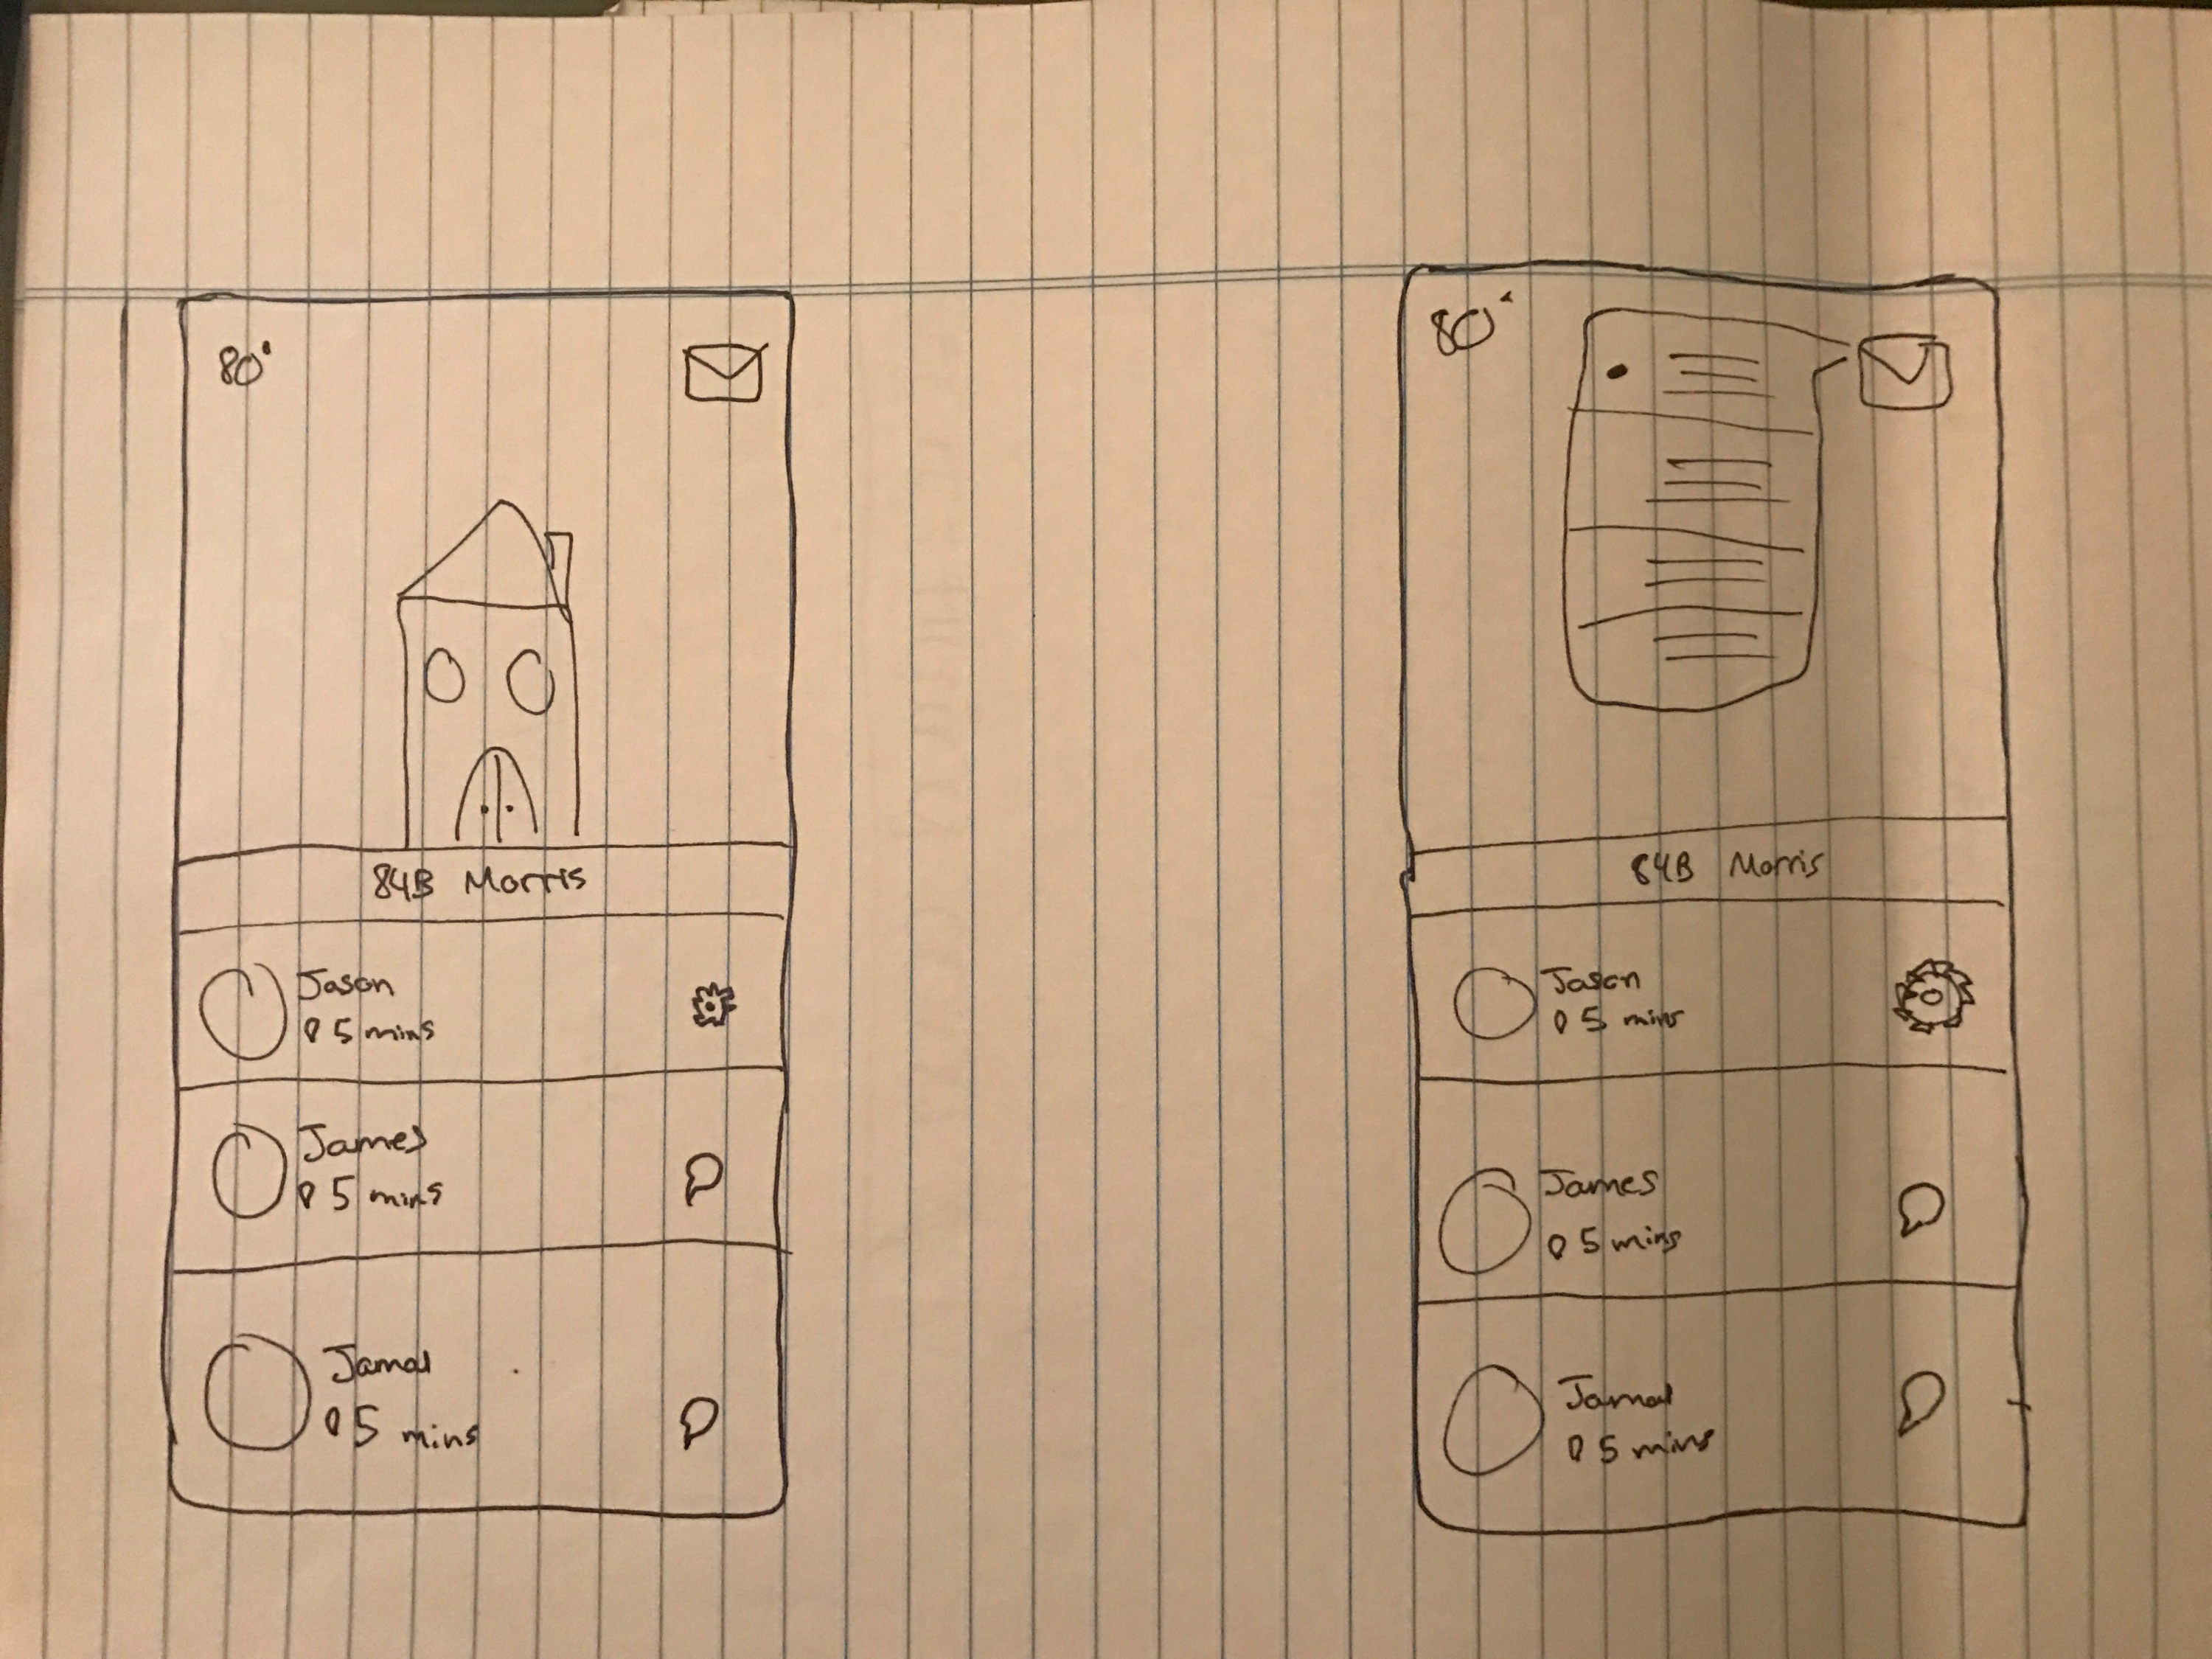 80°
84B Morris
Jason
5 mins
James
5 mins
Jamal
5 mins
80°
84B Morris
Jason
5 mins
James
5 mins
Jamal
5 mins